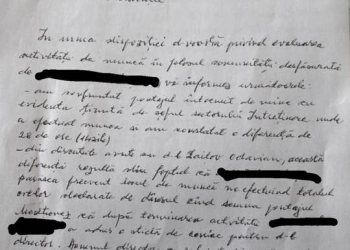 În urma dispoziției d-voastră privind evaluarea
activității de muncă în folosul comunității desfășurată
de vă informez următoarele:
- am confruntat pontajul întocmit de mine cu
evidența ținută de șeful sectorului Întreținere unde
a efectuat munca și am constatat o diferență de
28 de ore
- din discuțiile avute cu d-l Zaitov Octavian, această
diferență rezultă din faptul că
părăsea frecvent locul de muncă ne efectuând totalul
orelor declarate de dînsul când semna pontajul
Menționez că după terminarea activității
a adus o sticlă de coniac pentru d-l
director.